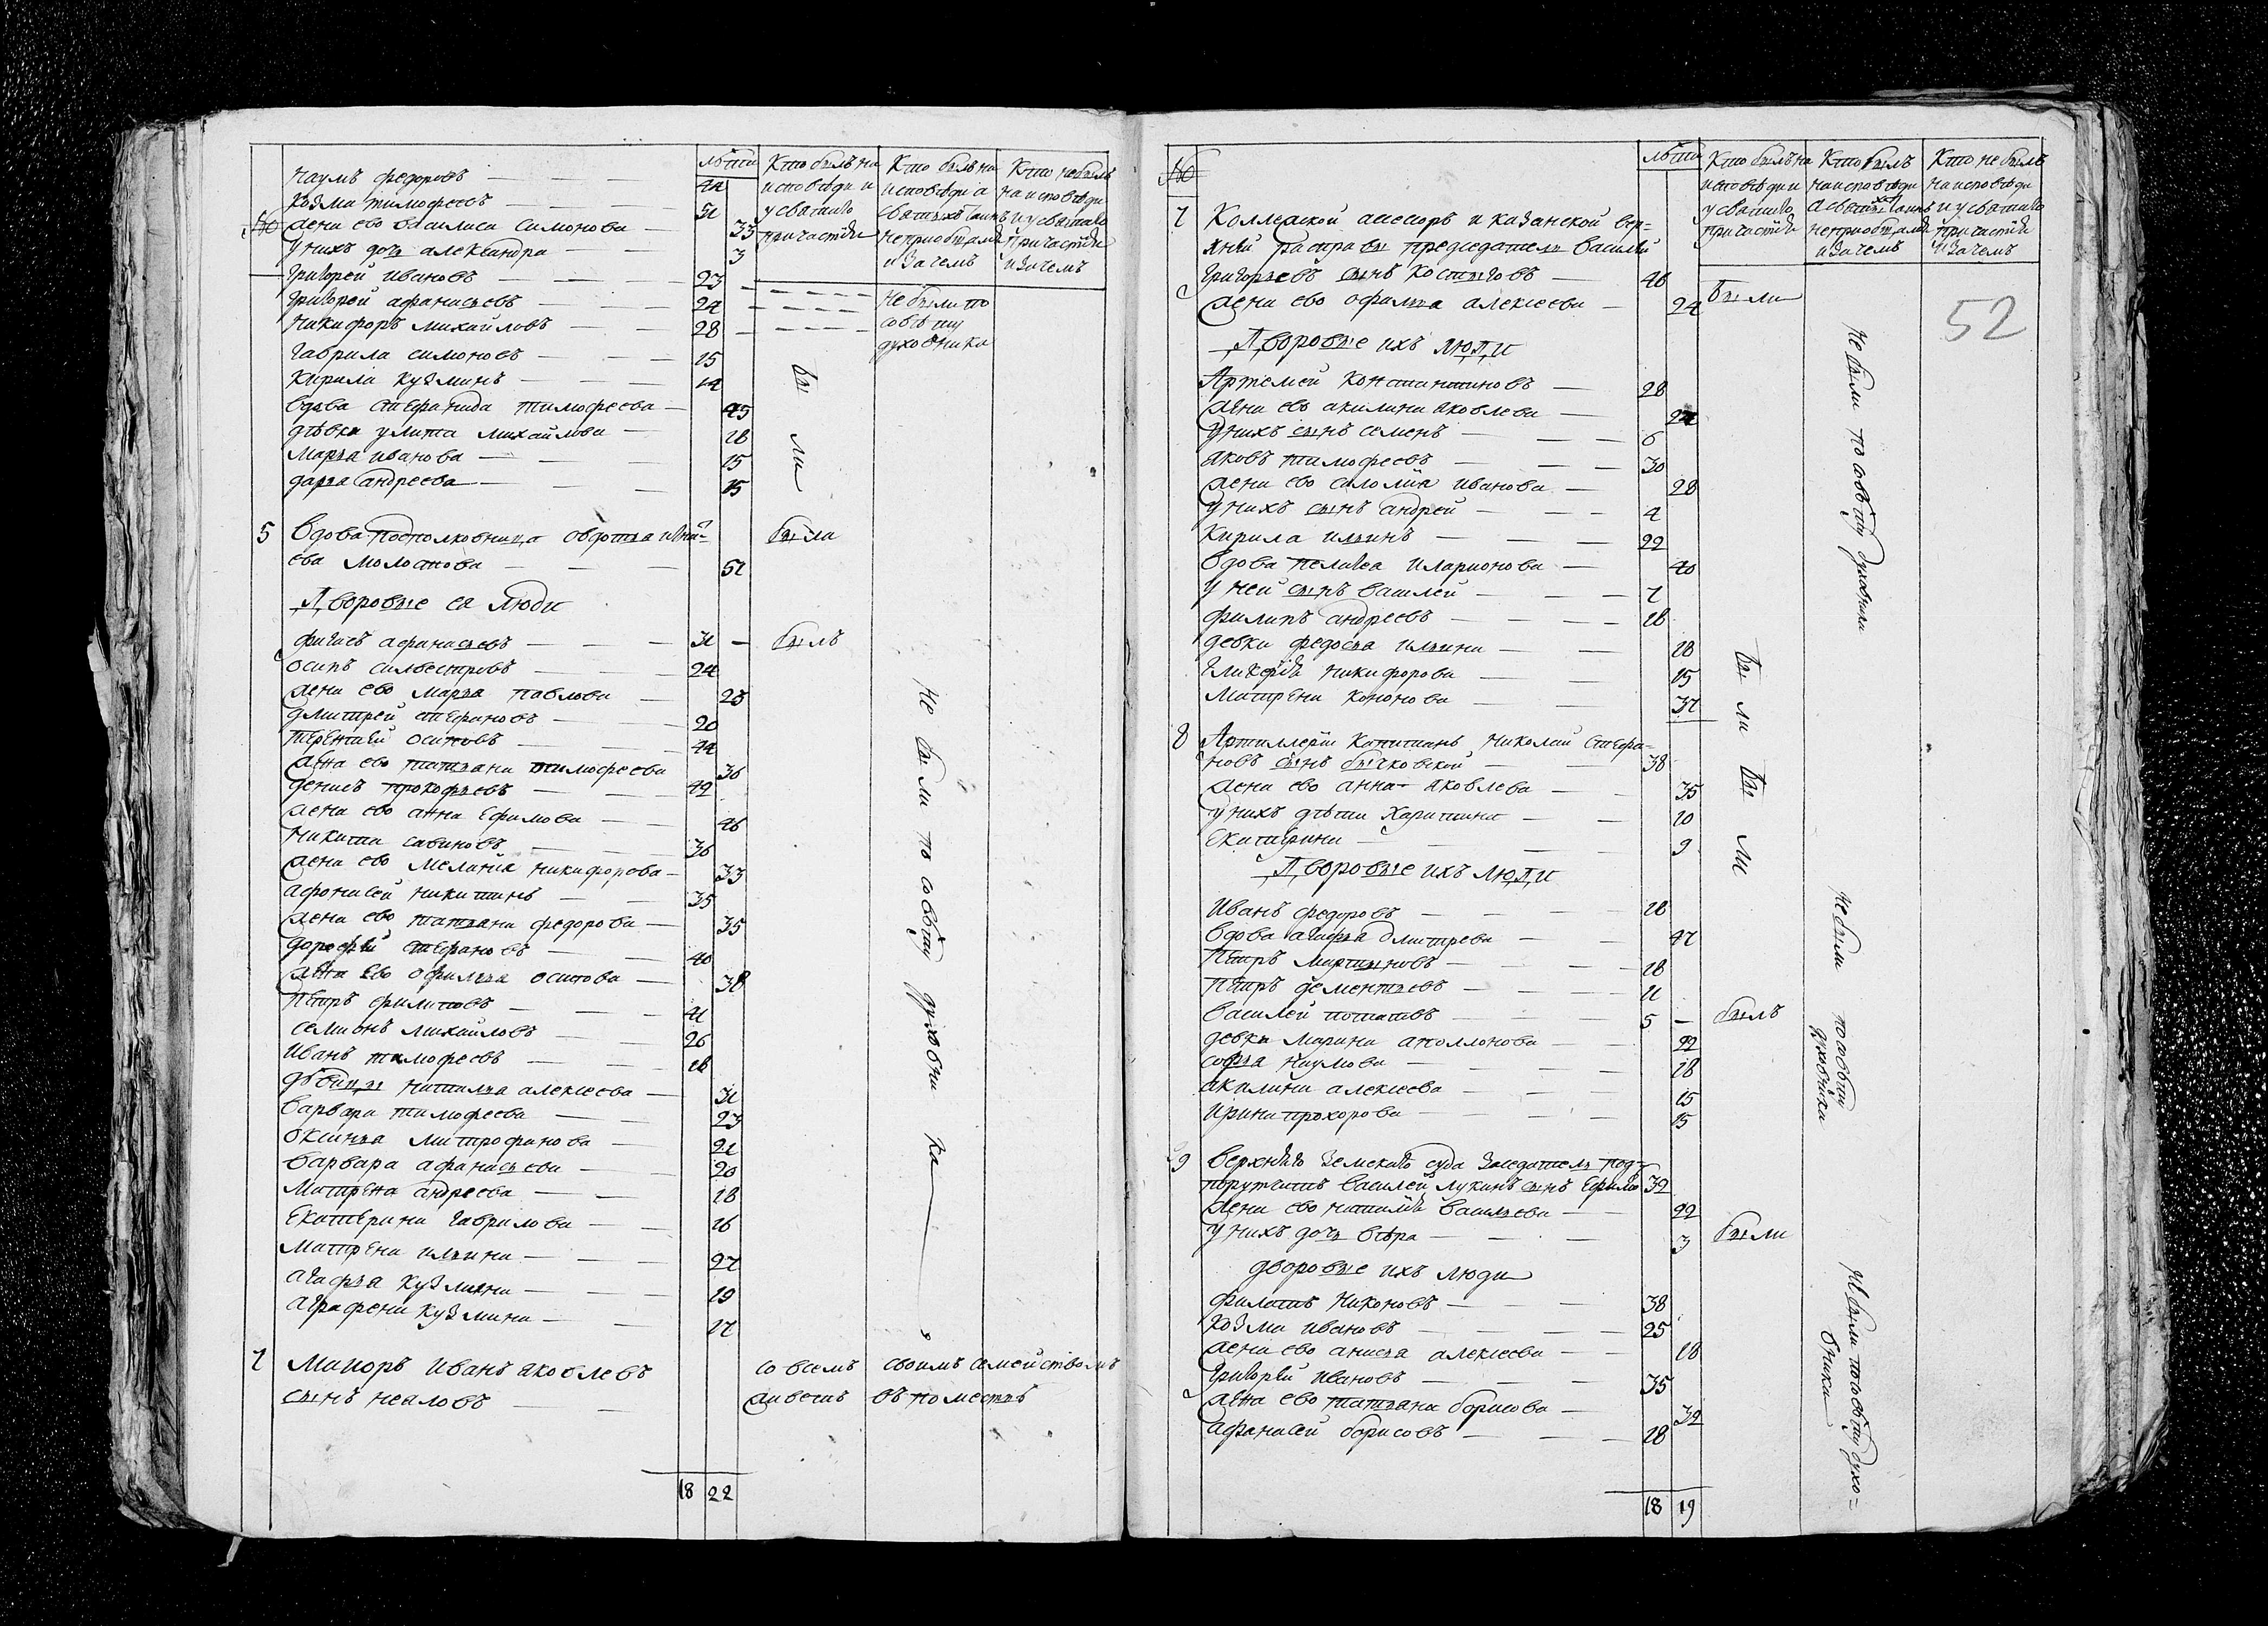 №
лѣта
Кто былъ на исповѣди и у святаго причастія
Кто былъ на исповѣди а святыхъ таинъ не приобщался и зачемъ
Кто не былъ на исповѣди и у святаго причастія и зачемъ
Наумъ федоровъ
Козма тимофеевъ 51
жена ево василиса Симонова 33
у нихъ дочь александра 3
Григорей Ивановъ 23
Григорей афанасьевъ 24
Никифоръ михайловъ 28
Не были по совѣту духовника
Гаврила симоновъ 15
Кирила Кузминъ 14
вдова стефанида тимофеева 45
дѣвки улита михайлова 18
Марья иванова 15
дарья андреева 15
Были
5 Вдова подполковница овдотья
ева молоствова 51 была
Дворовые ея люди
осипъ силвестровъ 24
жена ево марья павлова 23
дмитрей стефановъ 20
терентей осиповъ 44
жена ево татьяна тимофеева 36
денисъ прокофьевъ 42
жена ево анна Ефимова 46
Никита савиновъ 36
жена ево меланія никифорова 33
афонасей никитинъ 35
жена ево татьяна федорова 35
дорофей стефановъ 40
жена ево офимья осипова 38
Петръ филиповъ 41
семионъ михайловъ 26
Иванъ тимофеевъ 18
дѣвицы наталья алексеева 31
варвара тимофеева 23
оксинья митрофанова 21
варвара афанасьева 20
Матрена андреева 18
Екатерина гаврилова 16
Матрена ильина 27
агафья кузмина 19
аграфена кузмина 17
былъ
Не были по совѣту духовника
7 Маиоръ Иванъ яковлевъ со всемъ своимъ семействомъ
сынъ неаловъ живетъ въ поместьѣ
18 22
№
лѣта
Кто былъ на исповѣди и у святаго причастія
Кто былъ на исповѣди а святыхъ таинъ не приобщался и зачемъ
Кто не былъ на исповѣди и у святаго причастія и зачемъ
52
7 Коллежской асесоръ и казанской вер=
хней расправы председатель василей
Григорьевъ сынъ костыговъ 46
жена ево офимья алексеева 24 были
Дворовые ихъ люди
Артемей Константиновъ 28
жена ево акилина яковлева
у нихъ сынъ семенъ 6
яковъ тимофеевъ 30
жена ево саломия иванова 28
у нихъ сынъ андрей 4
Кирила ильинъ 22
вдова пелагея иларионова 40
у ней сынъ василей 7
филипъ андреевъ 18
девки федосья ильина 18
гликерія никифорова 15
Матрена кононова 37
Не были по совѣту духовника
8 Артиллеріи Капитанъ Николай Стефа=
новъ сынъ бычковской 38
жена ево анна яковлева 35
у нихъ дѣти Харитина 10
Екатерина 9
были
были
Дворовые ихъ люди
Иванъ федоровъ 18
вдова агафья дмитрева 47
Петръ мартыновъ 18
Петръ дементьевъ 11
василей потаповъ 5 былъ
девки Марина аполлонова 22
софья наумова 18
акилина алексеева 15
Ирина прохорова 15
Не были по совѣту духовника
9 Верхняго земскаго суда заседатель под=
порутчикъ василей лукинъ сынъ Ефимо 32
жена ево наталія васильева 22
у нихъ дочь вѣра 3 были
дворовые ихъ люди
филатъ никоновъ 38
Козма ивановъ 25
жена ево анисья алексеева 18
Григорей ивановъ 35
жена ево татьяна борисова 32
афанасей борисовъ 18
Не были по совѣту духо=
вника
18 19